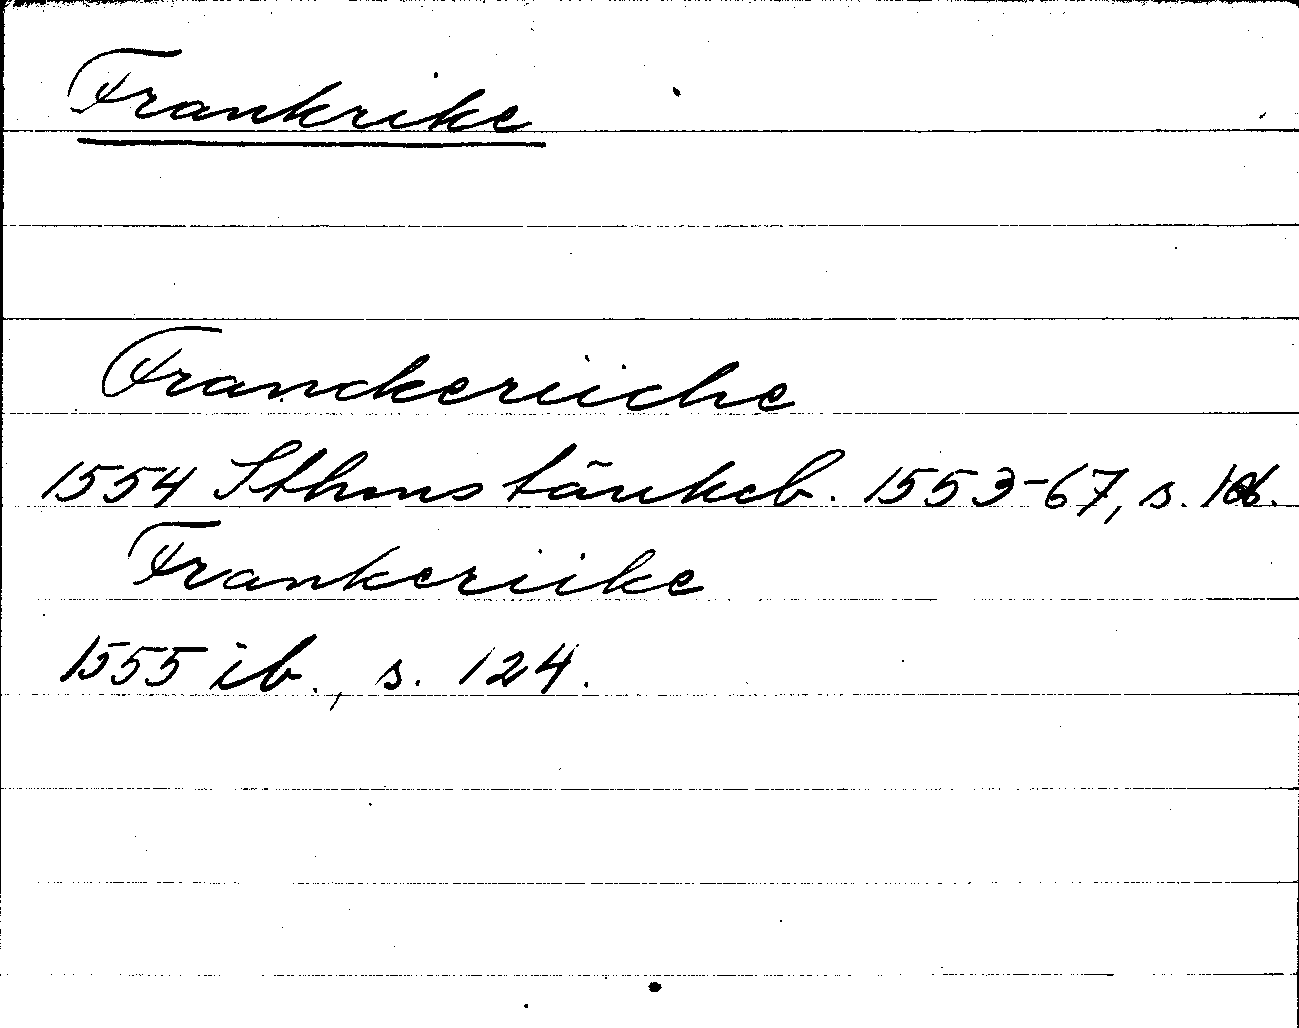 Frankrike
Franckeriiche
1554 Sthms tänkeb. 1553-67, s.
Frankeriike
1555 ib., s. 124.